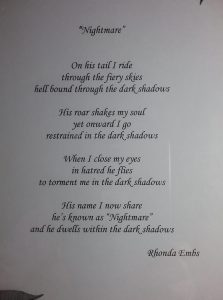 "Nightmare"
On his tail I ride
through the fiery skies
hell bound through the dark shadows
His roar shakes my soul
yet onward I go
restrained in the dark shadows
When I close my eyes
in hatred he flies
to torment me in the dark shadows
His name I now share
he's known as "Nightmare"
and he dwells within the dark shadows
Rhonda Embs